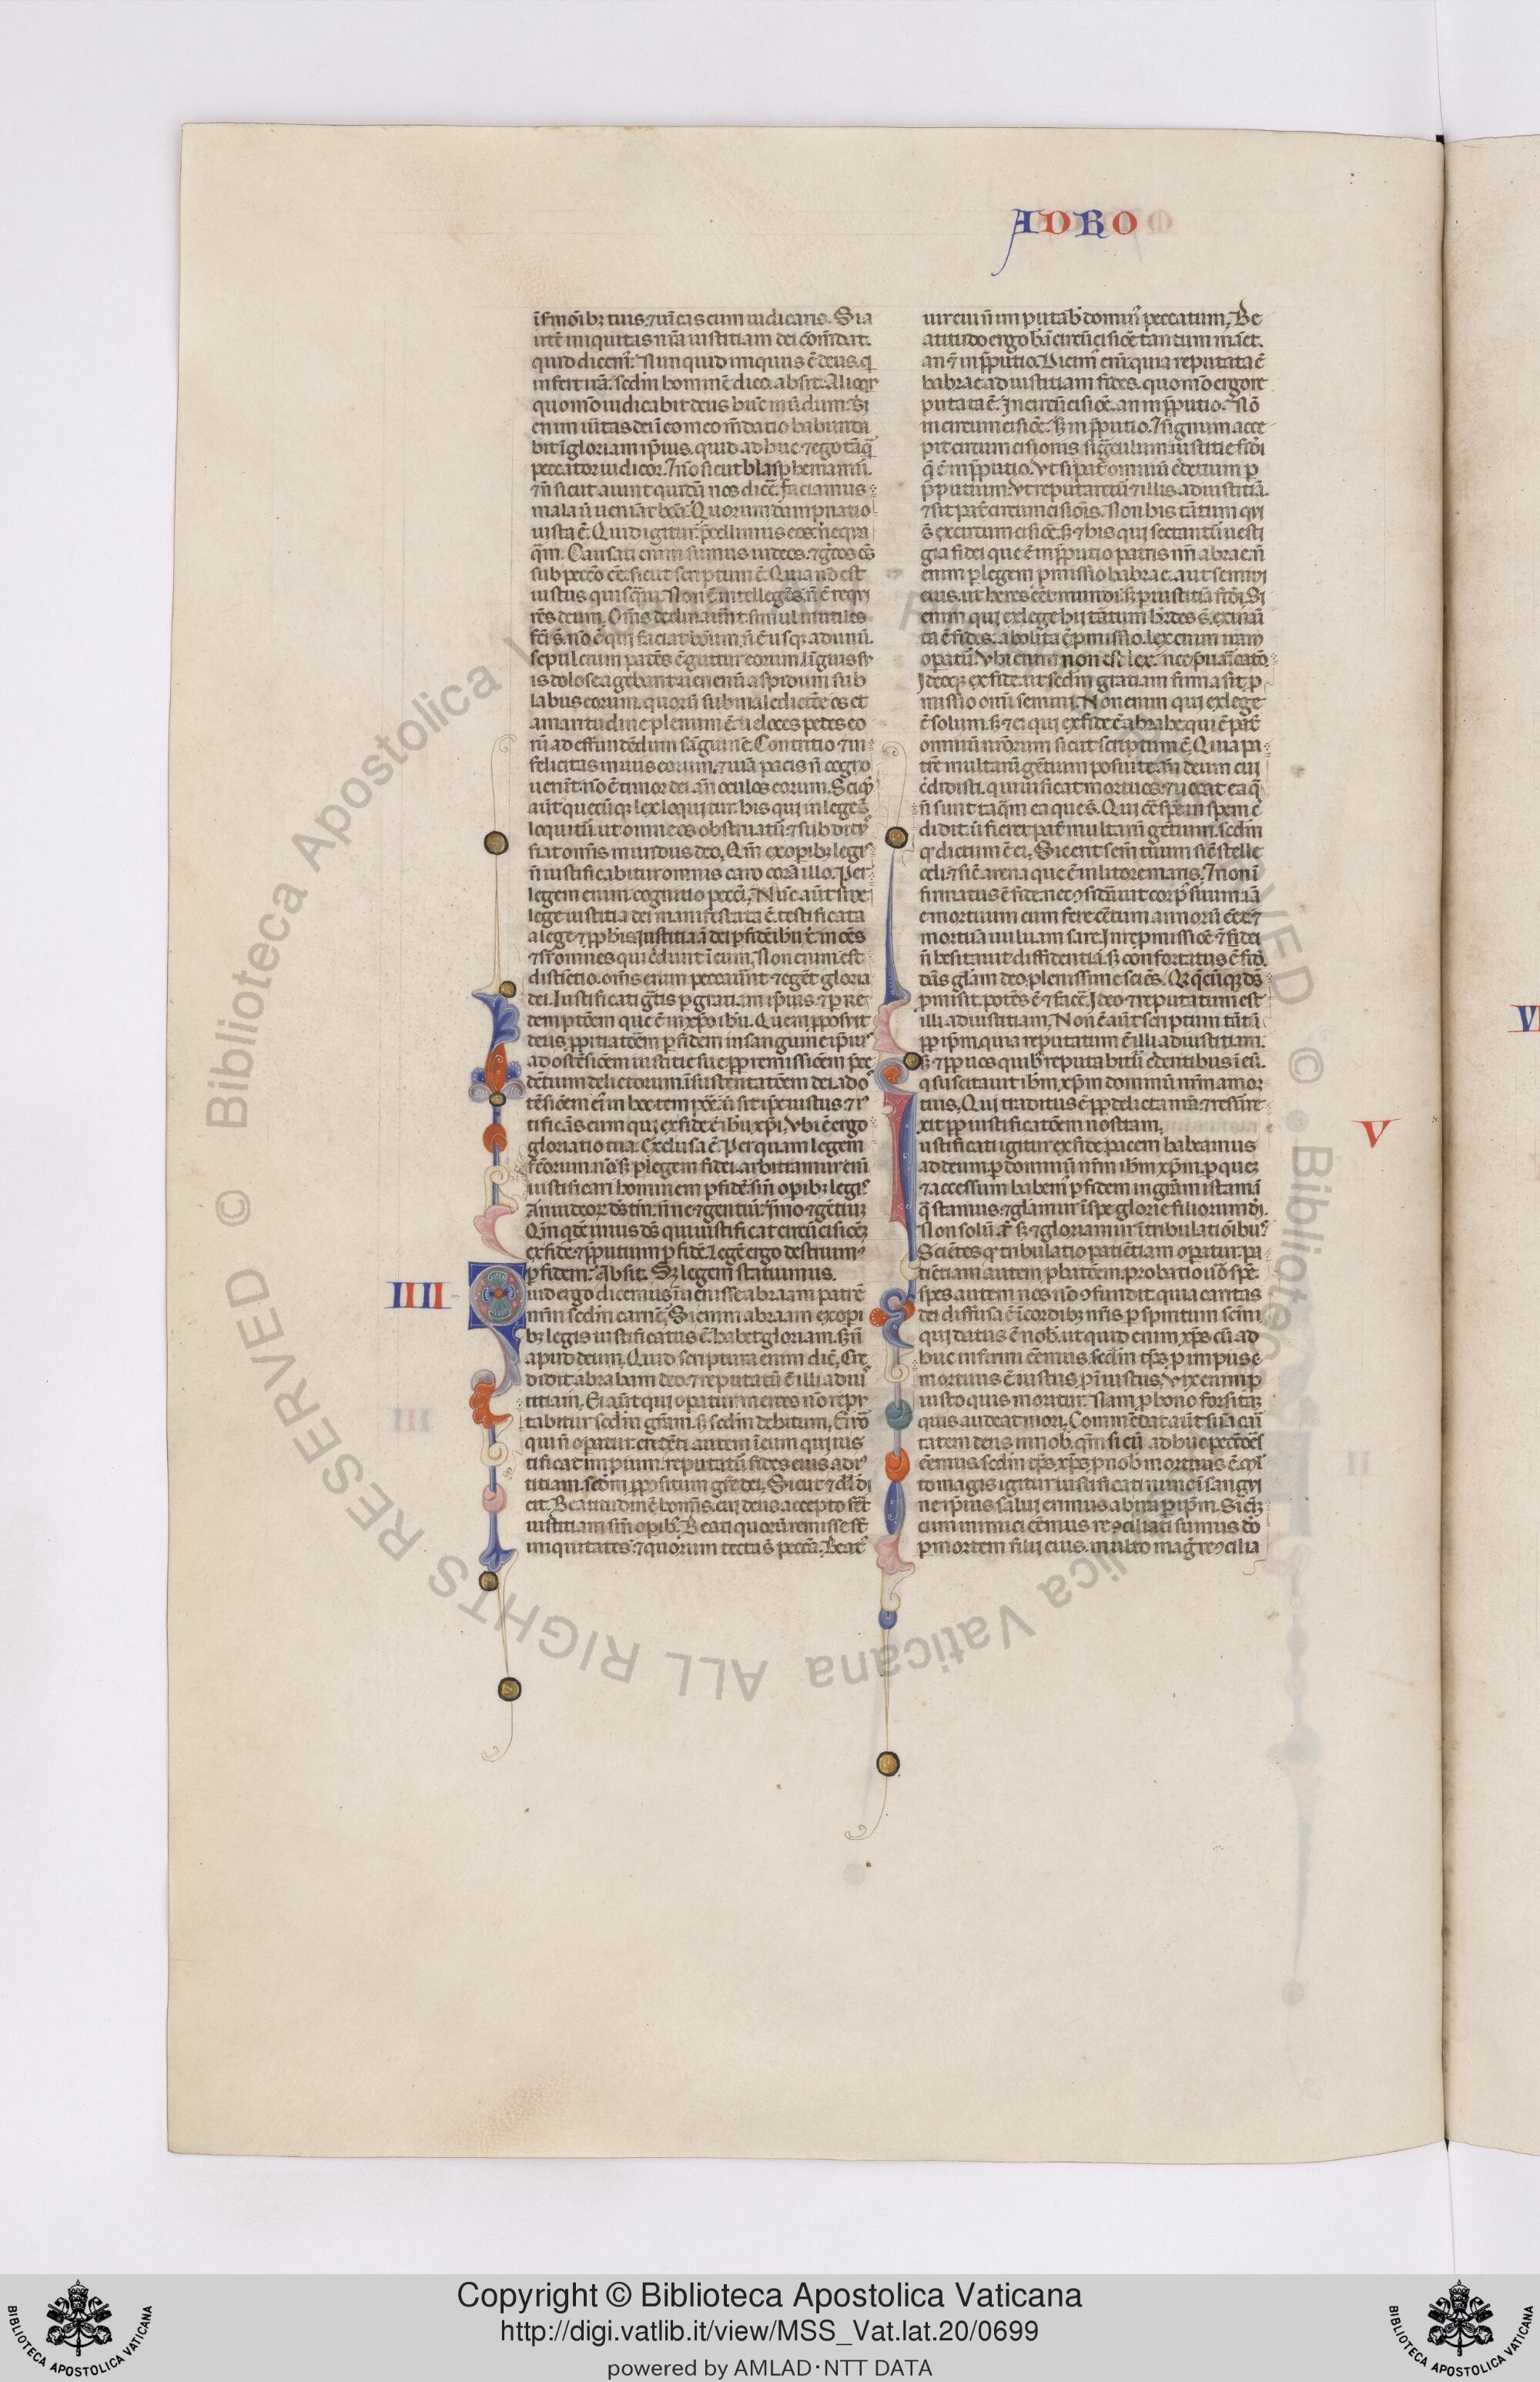 AD RO
ī sermōibꝫ tuis. ⁊ uīcas cum iudicaris. Si a
utē iniquitas nr̄a iustitiam dei cōm̄dat.
quid dicem̄. Nunquid iniquus ē deus. q̇
infert irā. scd̄m hominē dico. absit. Alioq̇
quomō iudicabit deus hūc mūdum. Si
enim uītas dei ī eo mēo m̄datio habunda
bit ī gloriam ip̄ius. quid adhuc ⁊ ego tāq̄
peccator iudicor. ⁊ nō sicut blasphemamū.
⁊ n̄ sicut aiunt quidā nos dicē. faciamus
mala ū ueniāt bōa. Quorum dampnatio
iusta ē. Quid igitur. p̄cellimus eos. neq̄ua
q̄m. Causati enim sumus iudeos. ⁊ g̊cos oēs
sub peccō eē. sicut scriptum ē. Quia nō est
iustus quisq̄m. Non ē intellegēs. n̄ ē requi
rēs deum. Om̄s declinauer̄t. simul inutiles
fc̄i s̄. nō ē qui faciat bōum. n̄ ē usq̄ ad unū.
sepulcrum patēs ē guttur eorum. līguis su
is dolose agebant. uenenū aspidum sub
labiis eorum. quorū sub maledictōe os et
amaritudine plenum ē. ueloces pedes eo
rū ad effundēdum sāguinē. Contritio ⁊ in
felicitas in uiis eorum. ⁊ uiā pacis n̄ cogno
uer̄nt. nō ē timor dei an̄ oculos eorum. Scimꝰ
aūt quecūqꝫ lex loquitur. his qui in lege s̄
loquitū. ut omne os obstruatū. ⁊ subditꝰ
fiat om̄is mundus deo. Q̄m ex opibꝫ legiˢ
n̄ iustificabitur omnis caro corā illo. Per
legem enim cognitio peccī. Nūc aūt sine
lege iustitia dei manifestata ē. testificata
a lege ⁊ pph̄is. Iustitia aū dei p fidē ih̄u x̄ in oēs
⁊ sr̄ omnes qui c̄dunt ī eum. Non enim est
distīctio. om̄s enim peccauer̄nt ⁊ egēt gloria
dei. Iustificati g̊tis p gratiam ip̄ius. ⁊ p re
demptōem que ē in xp̄o ih̄u. Quem pposuit
deus ppitiatōem p fidem in sanguine ip̄iuˢ
ad ostēsiōem iustitie sue pp remissiōem p̄ce
dētium delictorum. ī sustentatōem dei. ad oˢ
tēsiōem eiˢ in hoc tempoē. ū sit ip̄e iustus ⁊ iˢ
tificās eum qui ex fide ē ih̄u xp̄i. Vbi ē ergo
gloriatio tua. Exclusa ē. Per quam legem
fc̄orum. nō. sꝫ p legem fidei. arbitramur enī
iustificari hominem p fidē sin̄ opibꝫ legiˢ
An iudeoꝝ ds̄ tm̄. n̄ne ⁊ gentiū. īmo ⁊ gētiū
Q̄m q̇dē unus ds̄ qui iustificat circūcisiōeꝫ
ex fide. ⁊ p̄putium p fidē. Legē ergo destruimꝰ
p fidem. Absit. Sꝫ legem statuimus.
IIII
uid ergo dicemus. inuenisse abraam patrē
nr̄m scd̄m carnē. Si enim abraam ex opi
bꝫ legis iustificatus ē. habet gloriam. sꝫ n̄
apud deum. Quid scriptura enim dicē. Cre
didit abraham deo. ⁊ reputatū ē illi ad iuˢ
titiam. Ei aūt qui opatur merces nō repu
tabitur scd̄m gr̄am. sꝫ scd̄m debitum. Ei uō
qui n̄ opatur. credēti autem ī eum qui ius
tificat impium. reputatū fides eius ad iˢ
titiam. scd̄m ppositum gr̄e dei. Sicut ⁊ dd̄ di
cit. Beatitudinē hom̄is. cui deus accepto fēt
iustitiam sin̄ opibꝰ. Beati quorū remisse st̄
iniquitates. ⁊ quorum tecta s̄ peccā. Beatˢ
uir cui n̄ imputab̄ dominꝰ peccatum. Be
atitudo ergo h̄ in circūcisiōe tantum manet.
an ⁊ in p̄putio. Dicimꝰ enī. quia reputata ē
habrae ad iustitiam fides. quomō ergo re
putata ē. In circūcisiōe. an in p̄putio. Nō
in circumcisiōe. sꝫ in p̄putio. ⁊ signum acce
pit circumcisionis. sigāculum iustitie fidēi
q̄ ē in p̄putio. Vt sī pat̄ omniū c̄dentium p
p̄putium. Vt reputaretū ⁊ illis ad iustitiā.
⁊ sit pat̄ circumcisiōis. Non his tātum qui
s̄ ex circumcisiōe. sꝫ ⁊ his qui sectantū uesti
gia fidei que ē in p̄putio patris nr̄i abrae. n̄
enim p legem pmissio habrae. aut semini
eius. ut heres eēt mundi. sꝫ p iustitiā fidēi. Si
enim qui ex lege hii tātum h̄edes s̄. exinani
ta ē fides. abolita ē pmissio. lex enim iram
opatū. Vbi enim non est lex. nec p̄uaricatō.
Ideoqꝫ ex fide. ut scd̄m gratiam firma sit p
missio om̄i semini. Non enim qui ex lege
ē solum. sꝫ ⁊ ei qui ex fide ē abrahe. qui ē pat̄
omniū nr̄orum sicut scriptum ē. Quia pa
trē multarū gētium posui te. an̄ deum cui
c̄didisti. qui uiuificat mortuos. ⁊ uocat ea q̄
n̄ sunt tāq̄m ea que s̄. Qui cōt̄ spē in spem c̄
didit. ū fieret pat̄ multarū gētium. scd̄m
q̇ dictum ē ei. Sic erit sem̄ tuum sic̄ stelle
celi. ⁊ sic̄ arena que ē in litore maris. ⁊ non ī
firmatus ē fide. nec ꝯsidauit corpˢ suum iā
emortuum cum fere cētum annorū eēt. ⁊
mortuā uuluam sare. In repmissiōe ⁊ fidei
n̄ hesitauit diffidentia. sꝫ confortatus ē fidē.
dās glām deo. plenissime sciēs. Q̇ quecūqꝫ ds̄
pmisit. potēs ē ⁊ facē. Ideo ⁊ reputatum est
illi ad iustitiam. Non ē aūt scriptum tātū
pp ip̄m. quia reputatum ē illi ad iustitiam.
sꝫ ⁊ pp nos quibꝰ reputabitū c̄dentibus ī eū.
q suscitauit ih̄m xp̄m dominū nr̄m a mor
tuis. Qui traditus ē pp delicta nr̄a. ⁊ resure
xit pp iustificatōem nostram.
V
ustificati igitur ex fide pacem habeamus
ad deum. p dominū nr̄m ih̄m xp̄m. p quez
⁊ accessum habemˢ p fidem in gr̄am istam ī
q̄ stamus. ⁊ glamur ī spe glorie filiorum dī.
Non solū aū. sꝫ ⁊ gloriamur ī tribulatiōibuˢ.
Sciētes q̇ tribulatio patiētiam opatur. pa
tiētiam autem pbatōem. probatio uō spē.
spes autem nos nō ꝯfundit. quia caritas
dei diffusa ē ī cordibꝫ nr̄is p spiritum scm̄
qui datus ē nob̄. ut quid enim xp̄s cū ad
huc infirmi eēmus. scd̄m tp̄s. p impiis ē
mortuus ē iustus. p īiustus. Vix enim p
iusto quis moritur. Nam p bono forsitaꝫ
quis audeat mori. Commēdat aūt suā cari
tatem deus in nob̄. q̄m si cū adhuc peccōes
eēmus. scd̄m tp̄s xp̄s p nob̄ mortuus ē. Mˡ
to magis igitur iustificati nunc ī sangui
ne ip̄ius. salui erimus ab ira p ip̄m. Si eꝫ
cum inimici eēmus reꝯciliati sumus dō
p mortem filii eius. multo magˢ reꝯcilia
VI
Copyright © Biblioteca Apostolica Vaticana
http://digi.vatlib.it/view/MSS_Vat.lat.20/0699
powered by AMLAD･NTT DATA
BIBLIOTECA APOSTOLICA VATICANA
BIBLIOTECA APOSTOLICA VATICANA